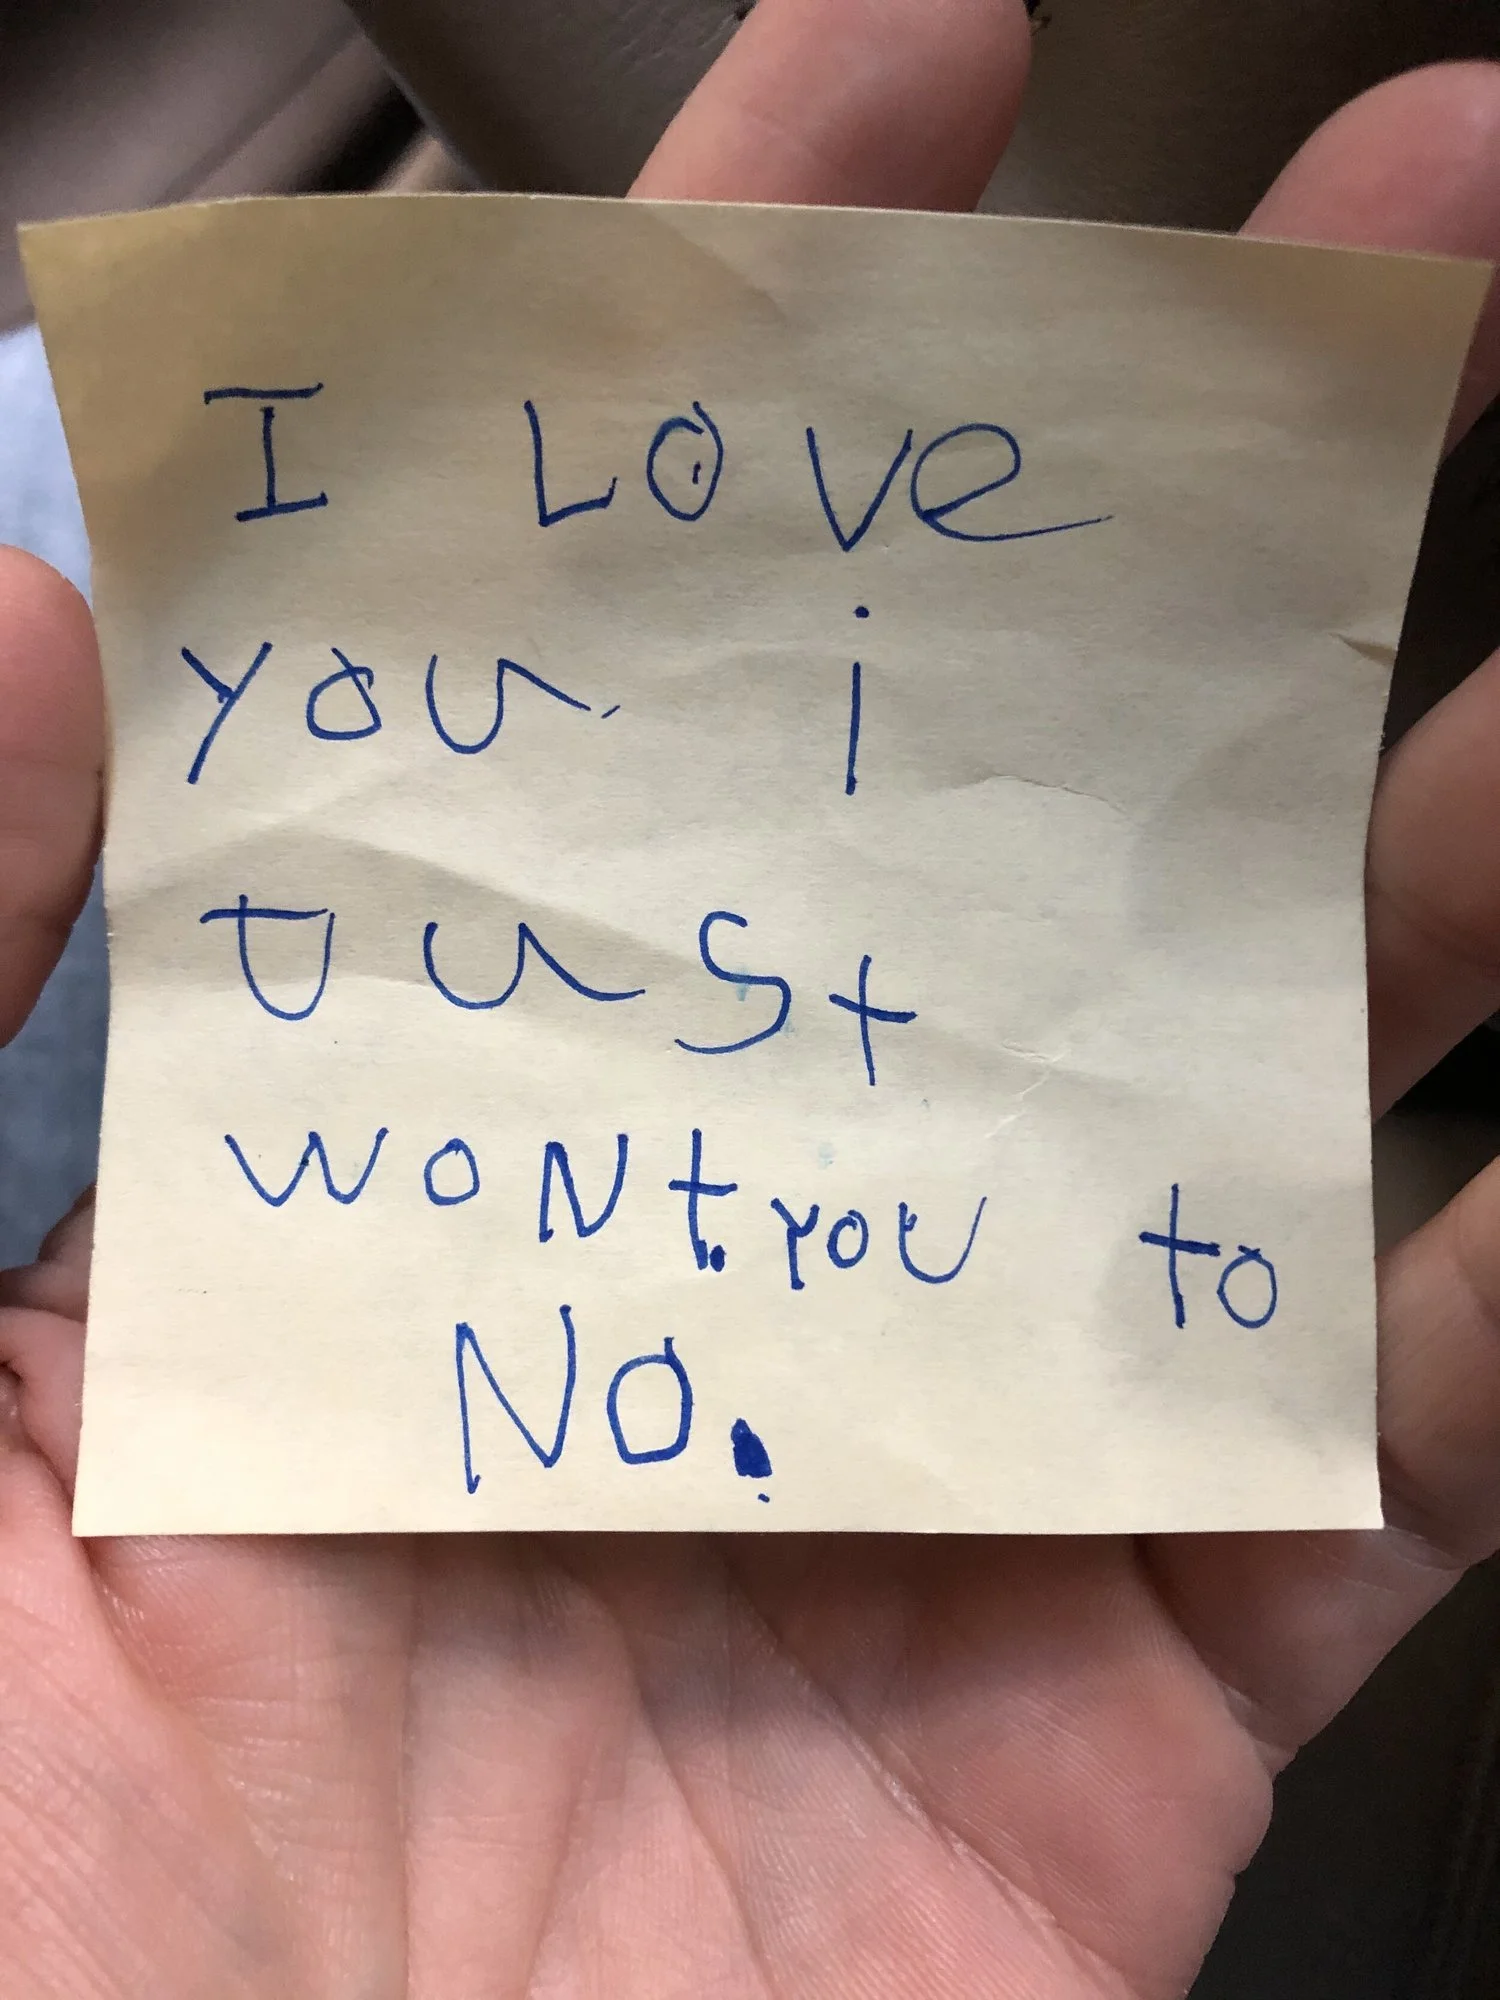 I LOVe
you. i
Just
woNt.you to
No.